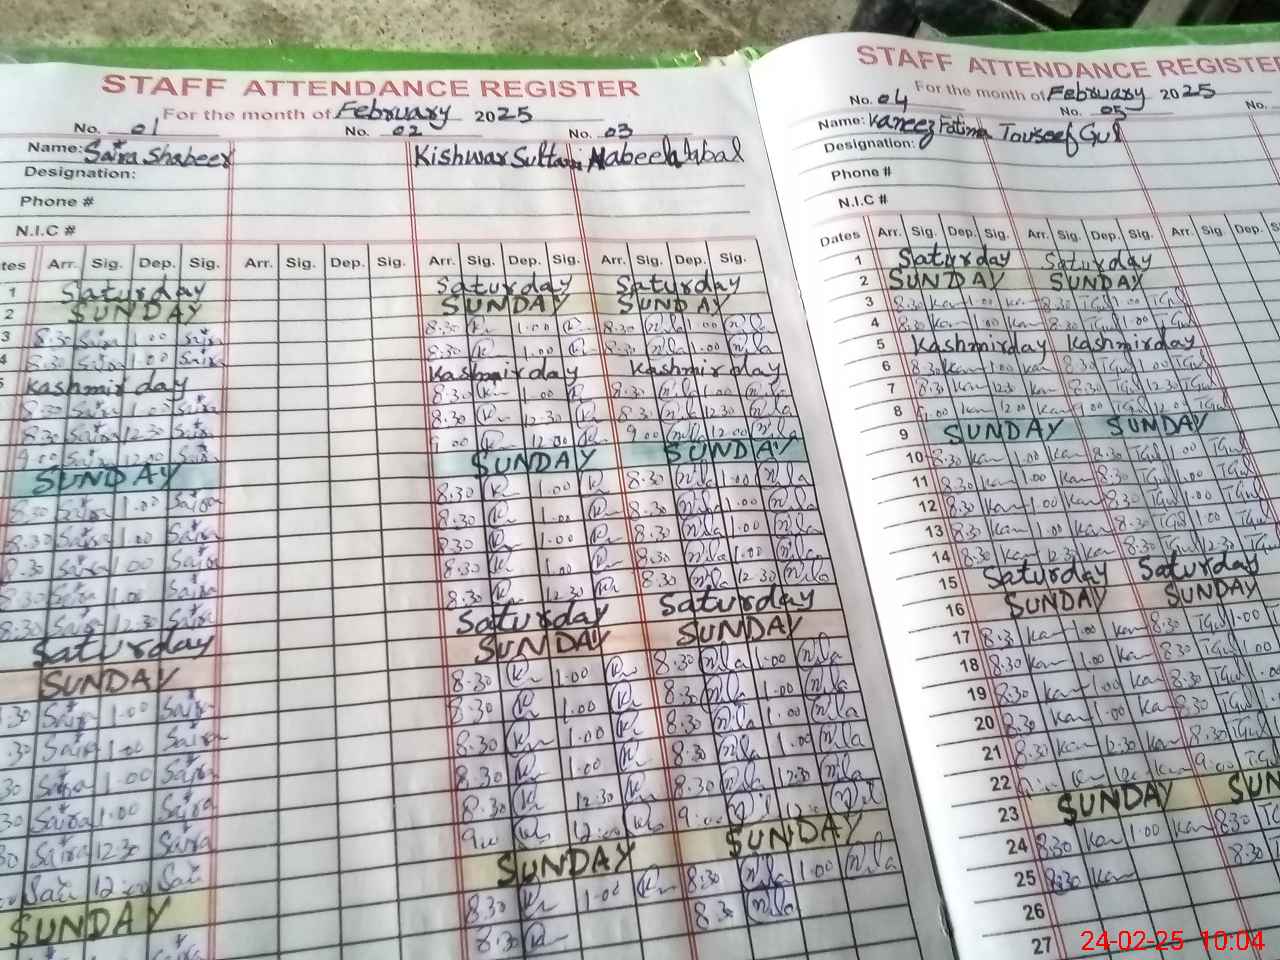 STAFF ATTENDANCE REGISTER
For the month of February 2025
No. 01 No. 02 No. 03
Name: Saira Shabeer Kishwar Sultan Nabeela Iqbal
Designation:
Phone #
N.I.C #
Arr. Sig. Dep. Sig. Arr. Sig. Dep. Sig. Arr. Sig. Dep. Sig. Arr. Sig. Dep. Sig.
1 Saturday Saturday Saturday
2 SUNDAY SUNDAY SUNDAY
3 8.30 Saira 1.00 Saira 8.30 1.00 8.30 nila 1.00 nila
4 8.30 Saira 1.00 Saira 8.30 1.00 8.30 nila 1.00 nila
Kashmir day Kashmir day Kashmir day
8.30 Saira 1.00 Saira 8.30 1.00 8.30 nila 1.00 nila
8.30 Saira 12.30 Saira 8.30 12.30 8.30 nila 12.30 nila
9.00 Saira 12.00 Saira 9.00 12.00 9.00 nila 12.00 nila
SUNDAY SUNDAY SUNDAY
8.30 Saira 1.00 Saira 8.30 1.00 8.30 nila 1.00 nila
8.30 Saira 1.00 Saira 8.30 1.00 8.30 nila 1.00 nila
8.30 Saira 1.00 Saira 8.30 1.00 8.30 nila 1.00 nila
Saira 1.00 Saira 8.30 1.00 8.30 nila 1.00 nila
8.30 Saira 12.30 Saira 8.30 12.30 8.30 nila 12.30 nila
Saturday Saturday Saturday
SUNDAY SUNDAY SUNDAY
.30 Saira 1.00 Saira 8.30 1.00 8.30 nila 1.00 nila
.30 Saira 1.00 Saira 8.30 1.00 8.30 nila 1.00 nila
30 Saira 1.00 Saira 8.30 1.00 8.30 nila 1.00 nila
30 Saira 1.00 Saira 8.30 1.00 8.30 nila 1.00 nila
30 Saira 12.30 Saira 8.30 12.30 8.30 nila 12.30 nila
12.00 12.00 9.00
SUNDAY SUNDAY SUNDAY
8.30 1.00 8.30 nila 1.00 nila
8.30 8.3 nila
STAFF ATTENDANCE REGISTER
For the month of February 2025
No. 04 No. 05 No.
Name: Kaneez Fatima Touseef Gul
Designation:
Phone #
N.I.C #
Dates Arr. Sig. Dep. Sig. Arr. Sig. Dep. Sig. Arr. Sig. Dep. S
1 Saturday Saturday
2 SUNDAY SUNDAY
3 8.30 Kan 1.00 Kan 8.30 TGul 1.00 TGul
4 8.30 Kan 1.00 Kan 8.30 TGul 1.00 TGul
5 Kashmirday Kashmirday
6 8.30 Kan 1.00 Kan 8.30 TGul 1.00 TGul
7 8.30 Kan 12.30 Kan 8.30 TGul 12.30 TGul
8 9.00 Kan 12.00 Kan 9.00 TGul 12.00 TGul
9 SUNDAY SUNDAY
10 8.30 Kan 1.00 Kan 8.30 TGul 1.00 TGul
11 8.30 Kan 1.00 Kan 8.30 TGul 1.00 TGul
12 8.30 Kan 1.00 Kan 8.30 TGul 1.00 TGul
13 8.30 Kan 1.00 Kan 8.30 TGul 1.00 TGul
14 8.30 Kan 12.30 Kan 8.30 TGul 12.30 TGul
15 Saturday Saturday
16 SUNDAY SUNDAY
17 8.3 Kan 1.00 Kan 8.30 TGul 1.00
18 8.30 Kan 1.00 Kan 8.30 TGul 1.00
19 8.30 Kan 1.00 Kan 8.30 TGul 1.00
20 8.30 Kan 1.00 Kan 8.30 TGul 1.00
21 8.30 Kan 12.30 Kan 8.30 TGul
22 Kan Kan 9.00 TGul
23 SUNDAY SUN
24 8.30 Kan 1.00 Kan 8.30 TGul
25 8.30 Kan 8.30
26
27
24-02-25 10:04